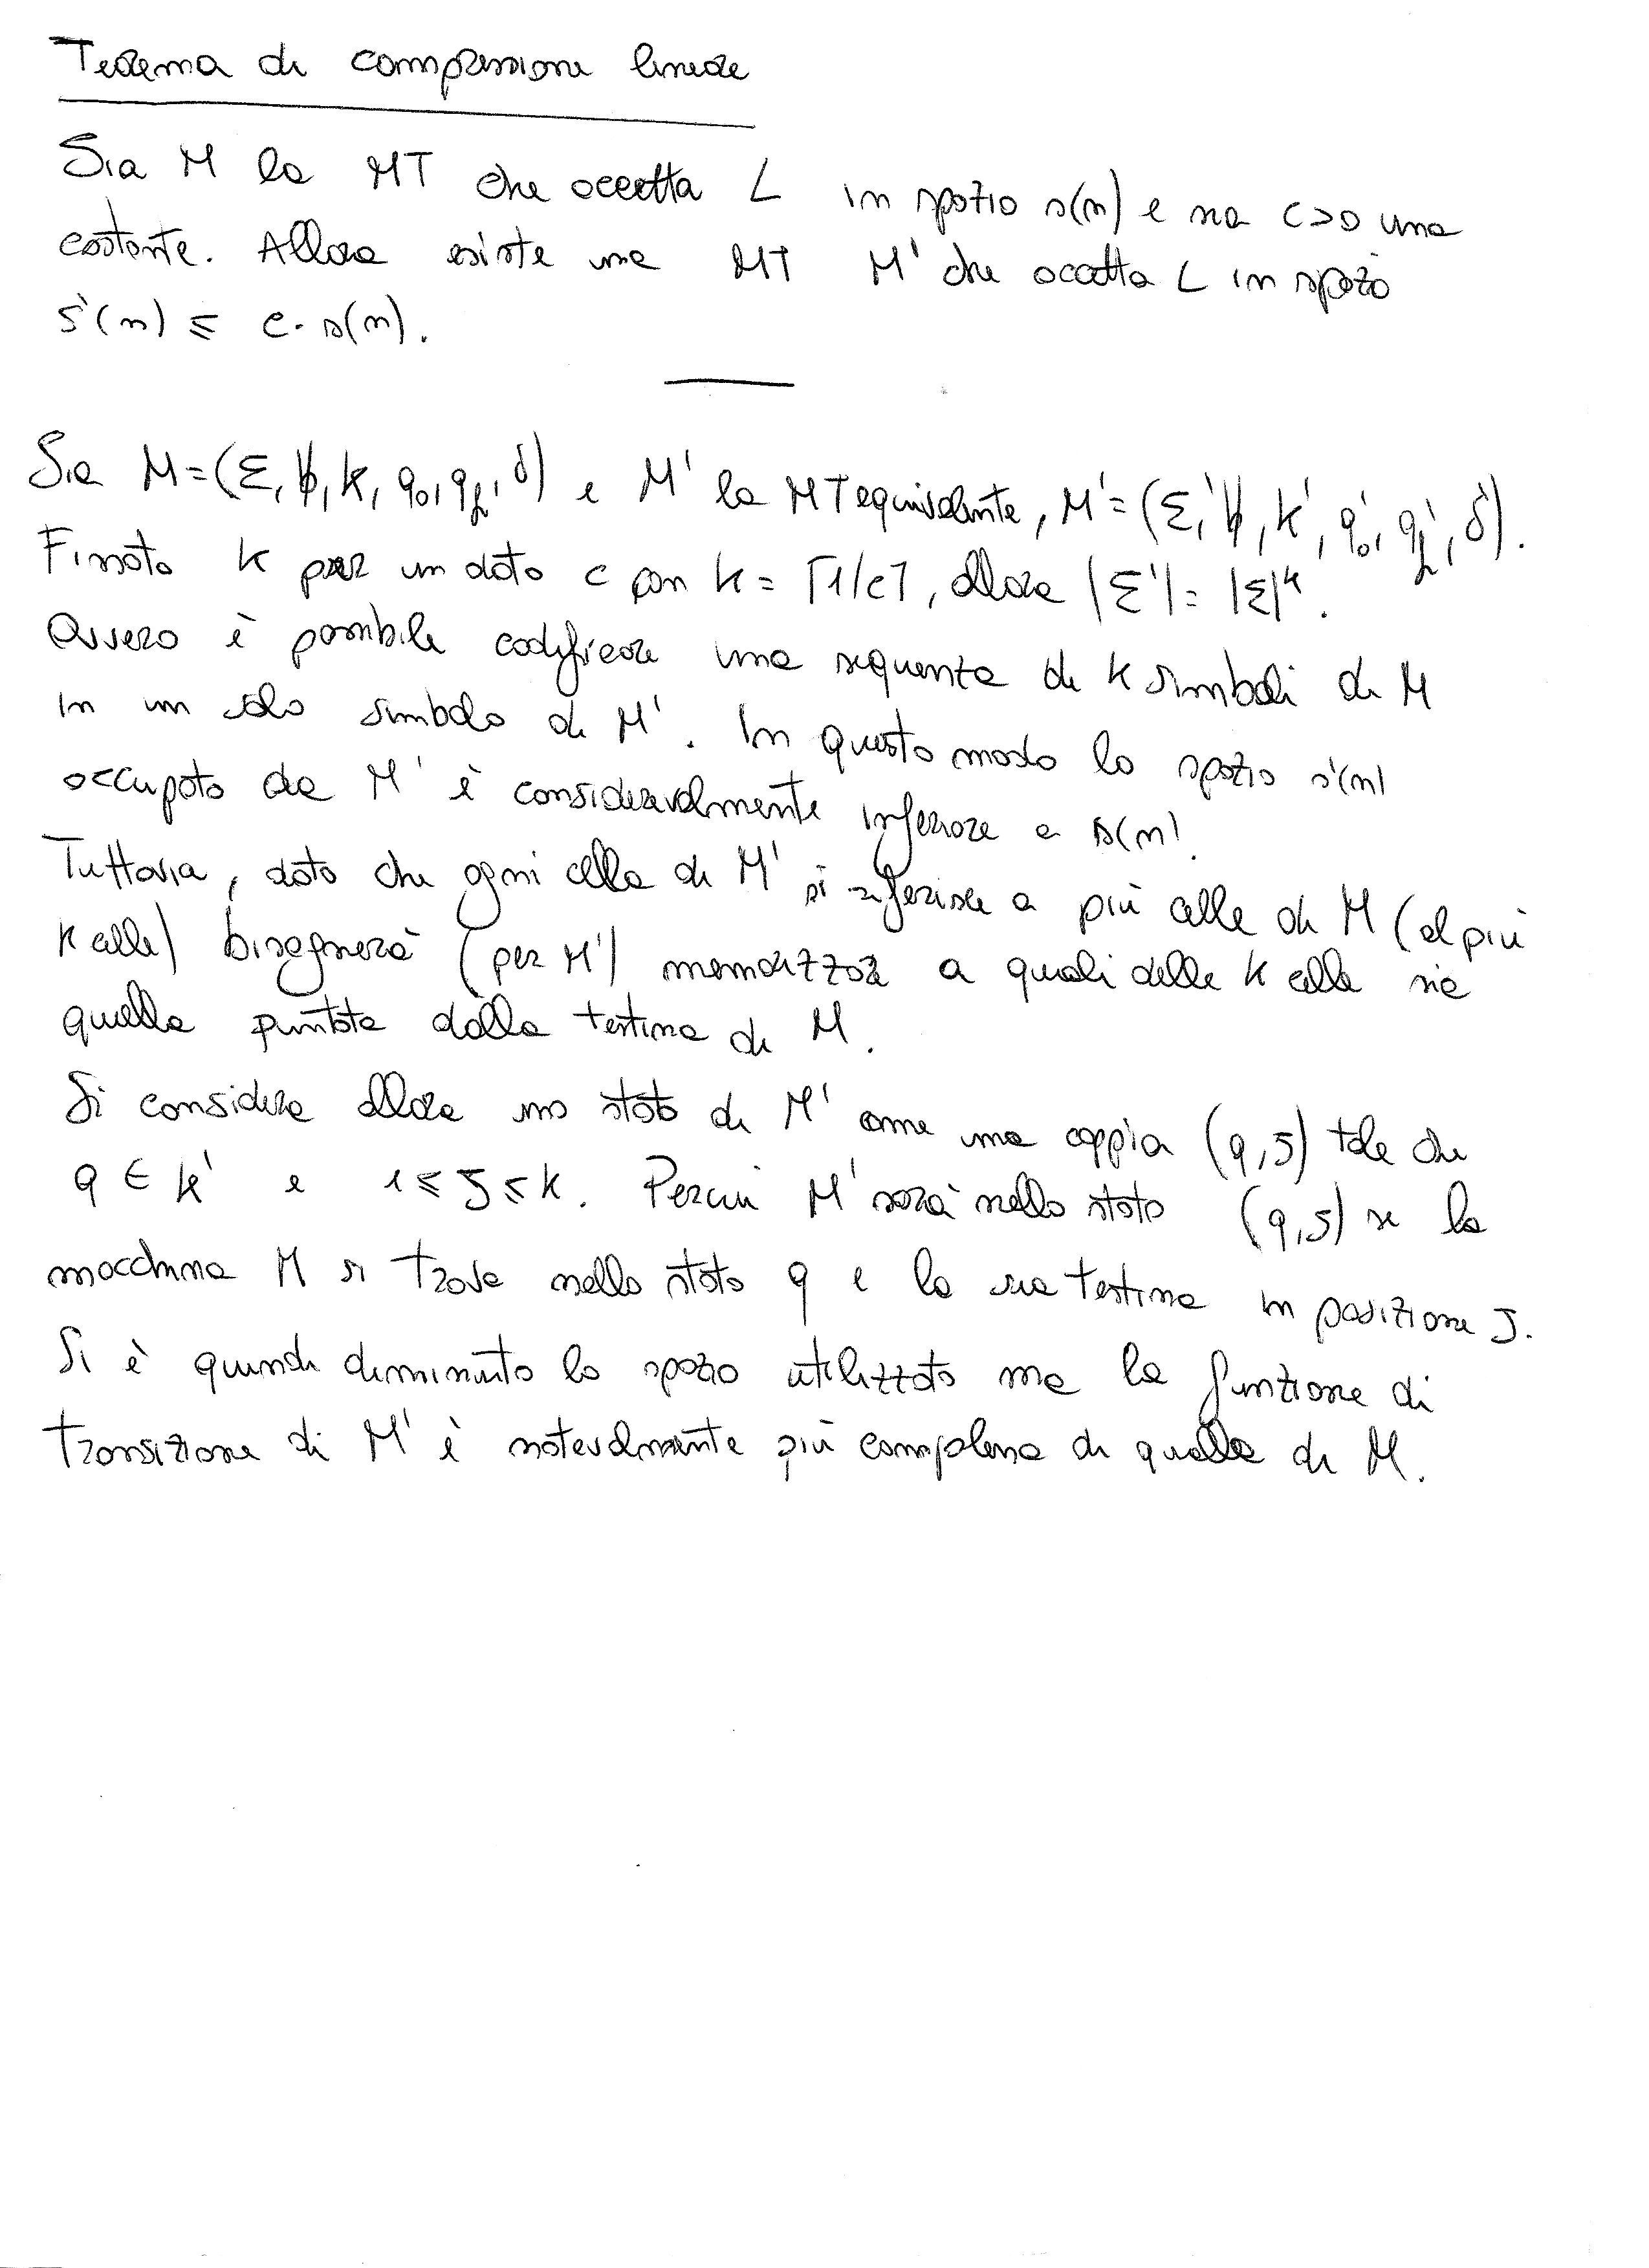 Teorema di compressione lineare
Sia M la MT che accetta L in spazio s(n) e sia c>0 una
costante. Allora esiste una MT M' che accetta L in spazio
s'(n) ≤ c·s(n).
Sia M=(Σ, ƀ, K, q₀, q_f, δ) e M' la MT equivalente, M'=(Σ', ƀ, K', q₀', q_f', δ').
Fissato k per un dato c con k = ⌈1/c⌉, allora |Σ'| = |Σ|ᵏ.
Ovvero è possibile codificare una sequenza di k simboli di M
in un solo simbolo di M'. In questo modo lo spazio s'(n)
occupato da M' è considerevolmente inferiore a s(n).
Tuttavia, dato che ogni cella di M' si riferisce a più celle di M (al più
k celle) bisognerà (per M') memorizzare a quali delle k celle sia
quella puntata dalla testina di M.
Si considera allora uno stato di M' come una coppia (q,J) tale che
q ∈ K' e 1 ≤ J ≤ k. Percui M' sarà nello stato (q,J) se la
macchina M si trova nello stato q e la sua testina in posizione J.
Si è quindi diminuito lo spazio utilizzato ma la funzione di
transizione di M' è notevolmente più complessa di quella di M.